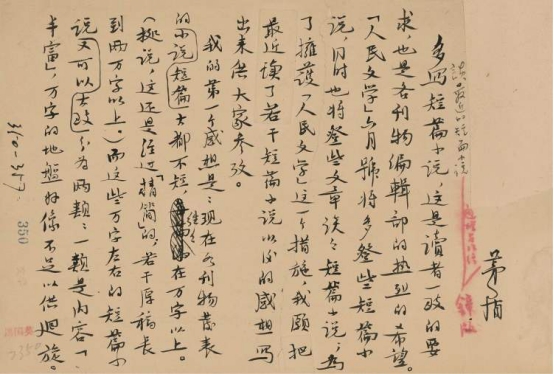 谈最近的短篇小说
茅盾
多写短篇小说，这是读者一致的要
求，也是各刊物编辑部的热烈的希望。
「人民文学」六月号将多登些短篇小
说，同时也将登些文章谈谈短篇小说，为
了拥护「人民文学」这一个措施，我愿把
最近读了若干短篇小说以后的感想写
出来供大家参考。
我的第一个感想是：现在各刊物发表
的小说短篇大都不短，往往在万字以上。
（据说，这还是经过「精简」的，若干原稿长
到两万字以上。）而这些万字左右的短篇小
说又可以大致分为两类：一类是内容
丰富，万字的地盘好像不足以供回旋。
310-317
350